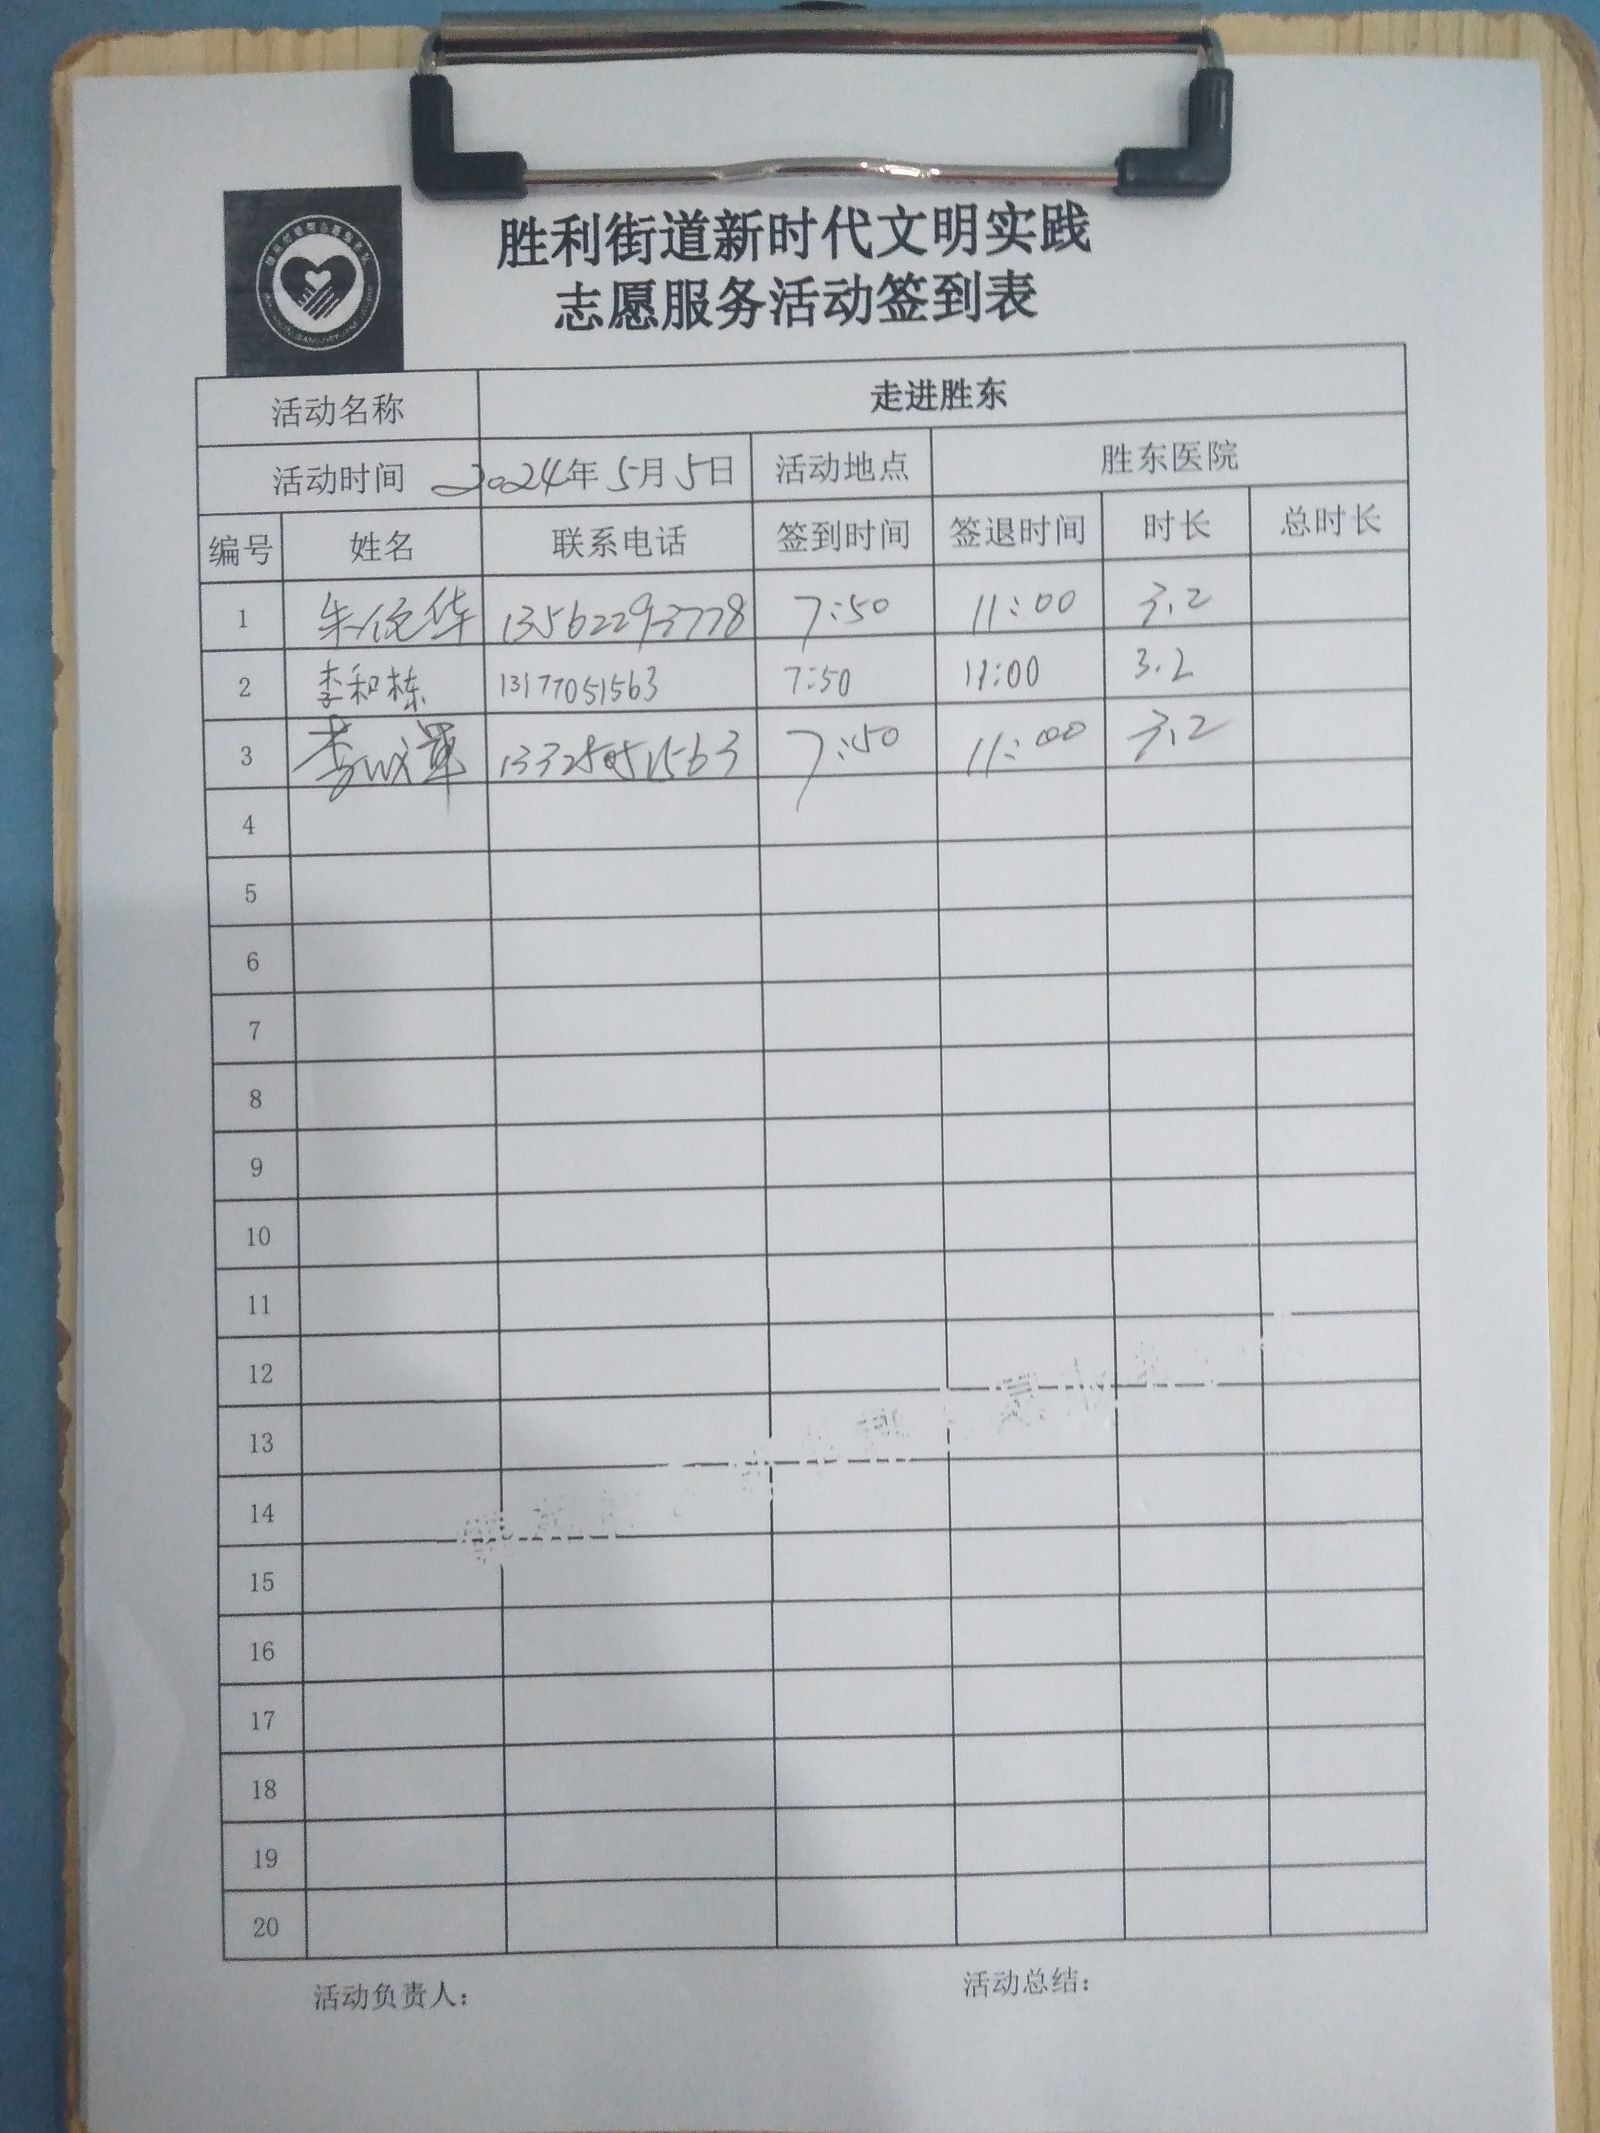 胜利街道新时代文明实践
志愿服务活动签到表
活动名称 走进胜东
活动时间 2024年5月5日 活动地点 胜东医院
编号 姓名 联系电话 签到时间 签退时间 时长 总时长
1 朱俊华 13562293778 7:50 11:00 3.2
2 李和栋 13177051563 7:50 11:00 3.2
3 李 1563 7:50 11:00 3.2
4
5
6
7
8
9
10
11
12
13
14
15
16
17
18
19
20
活动负责人： 活动总结：